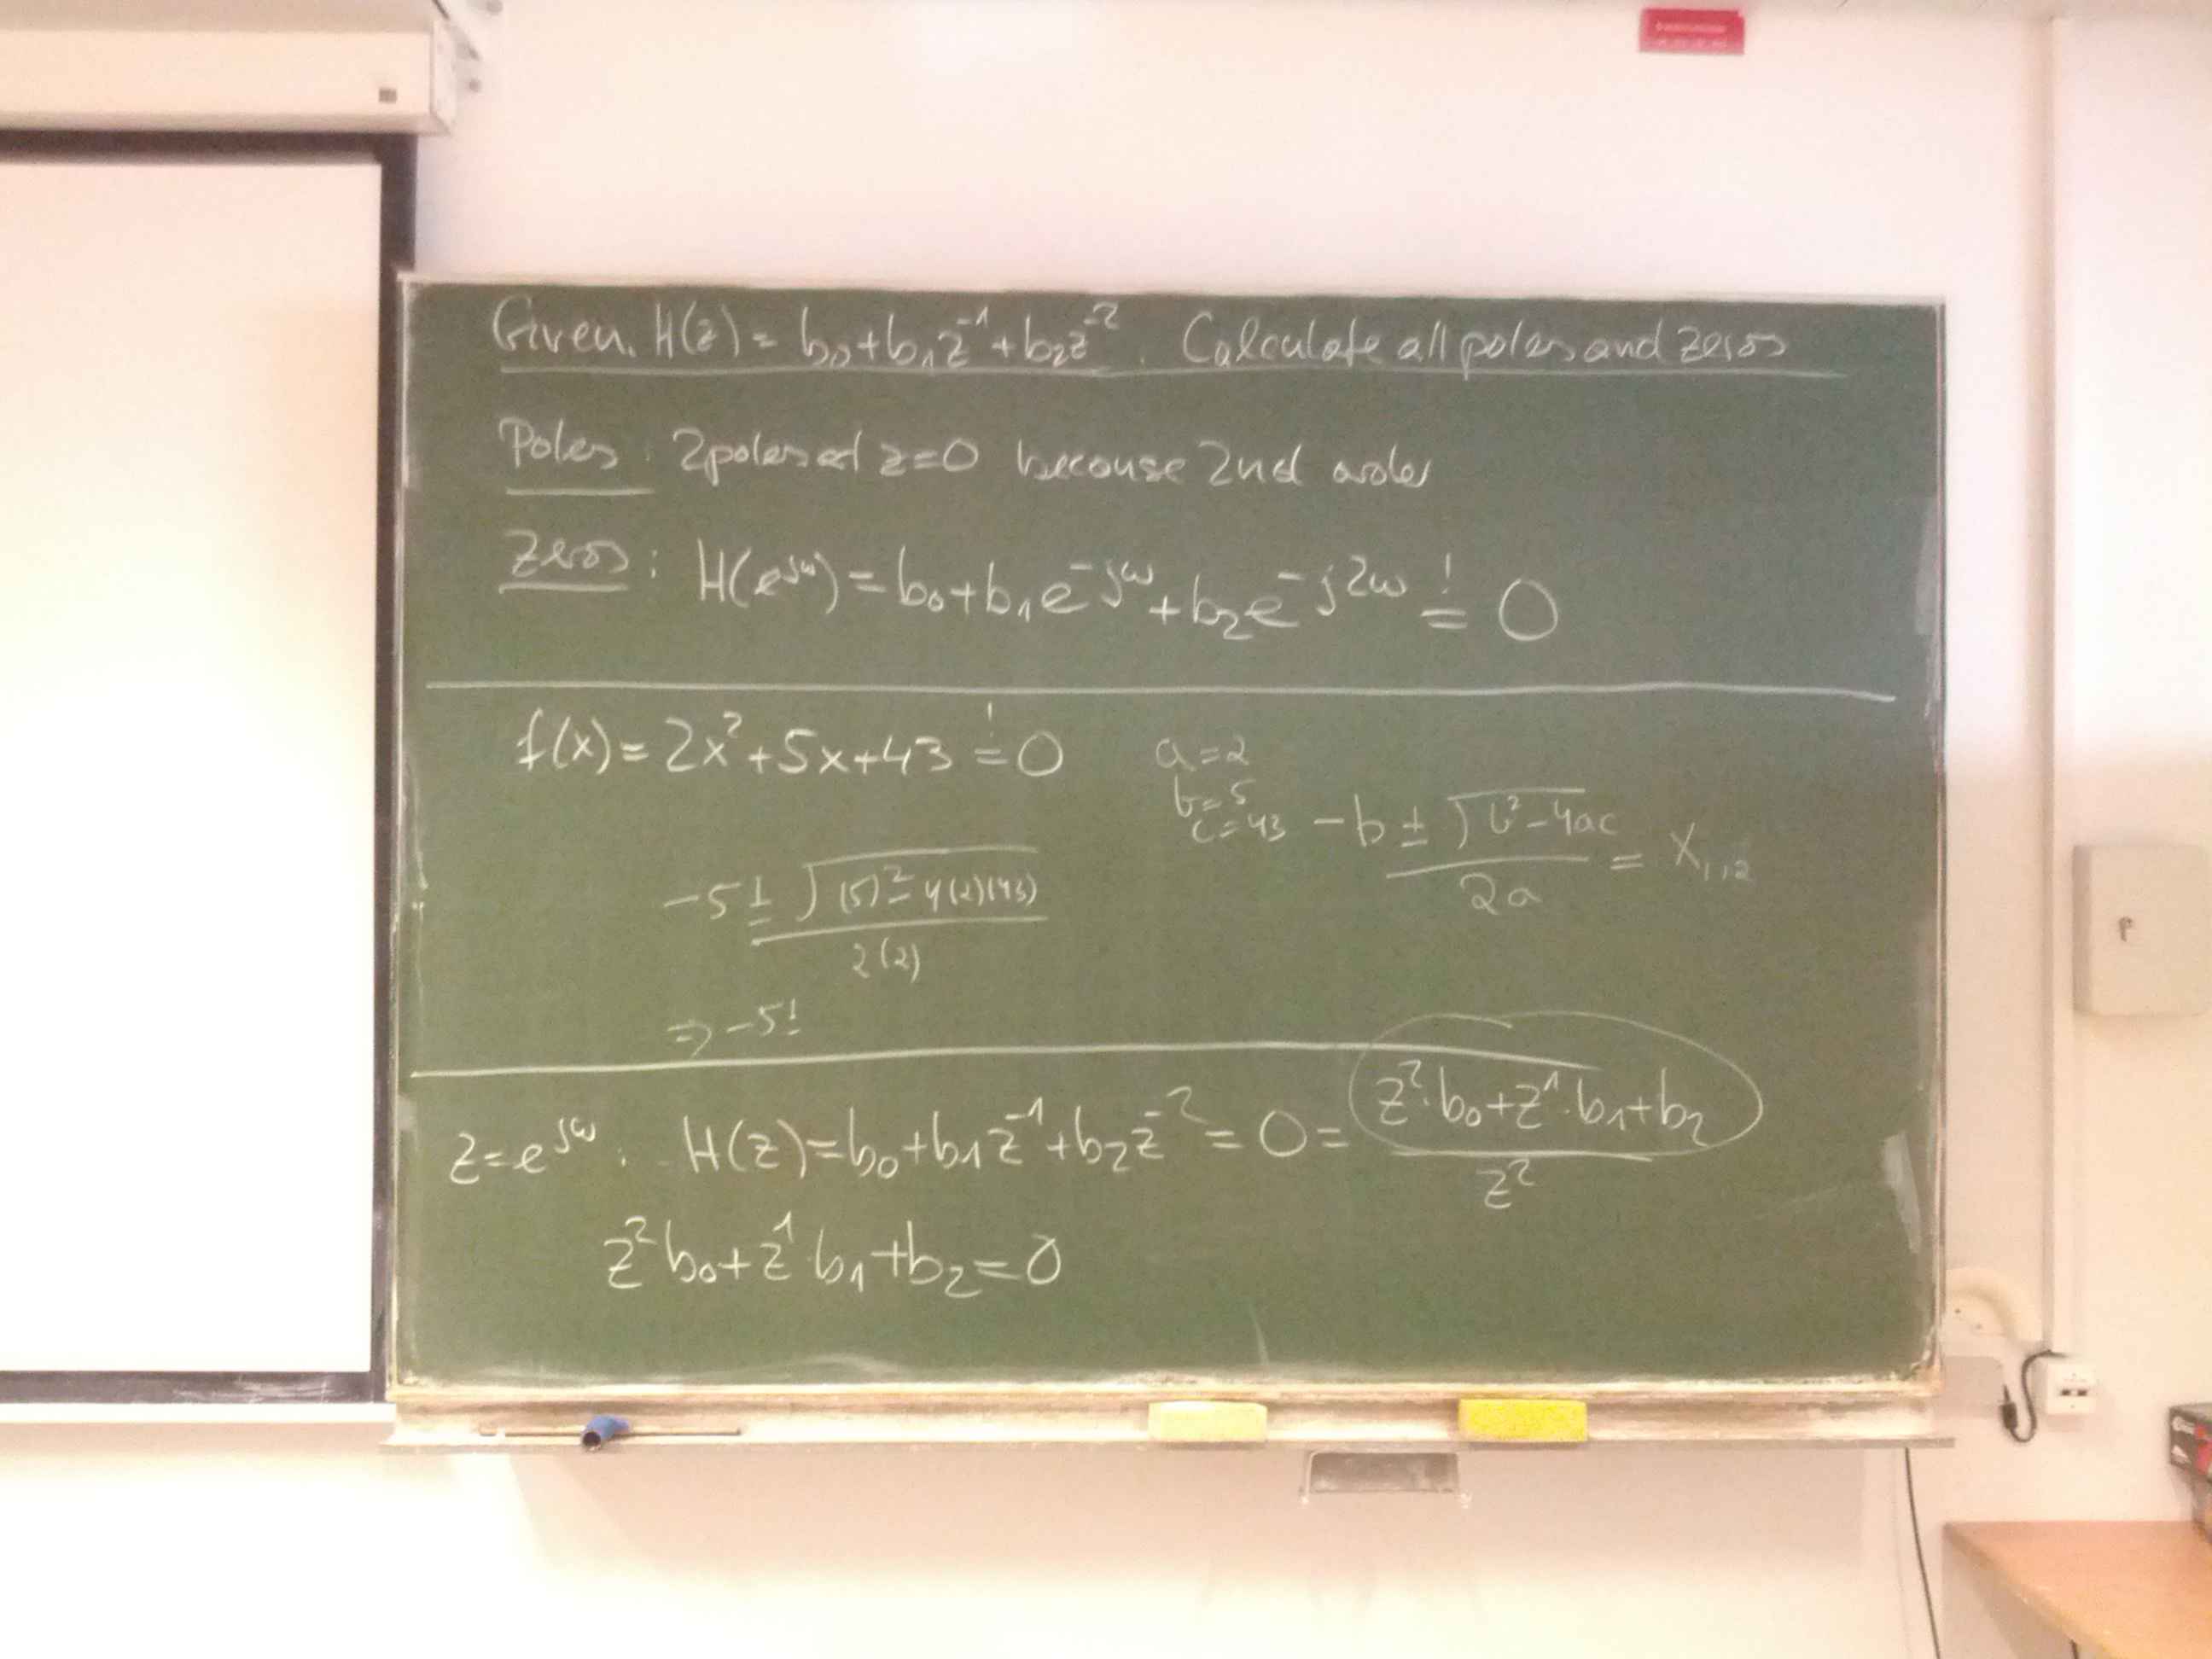 Given. H(z) = b₀+b₁z⁻¹+b₂z⁻². Calculate all poles and zeros
Poles: 2 poles at z=0 because 2nd order
Zeros: H(e^jω) = b₀+b₁e^-jω+b₂e^-j2ω != 0
f(x) = 2x²+5x+43 != 0
a=2
b=5
c=43
-b ± √(b²-4ac) / 2a = X₁,₂
-5 ± √((5)²-4(2)(43)) / 2(2)
⇒ -5±
z=e^jω: H(z)=b₀+b₁z⁻¹+b₂z⁻² = 0 = (z²·b₀+z¹·b₁+b₂) / z²
z²b₀+z¹·b₁+b₂=0